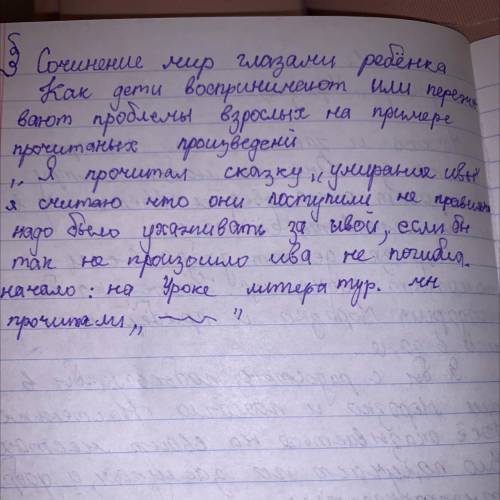 § Сочинение мир глазами ребёнка
Как дети воспринимеют или пережи
вают проблемы взрослых на примере
прочитаных произведений
„Я прочитал сказку „умирания ивы
я считаю что они поступили не правильно
надо было ухаживать за ивой, если бы
так не произошло ива не погибла.
начало: на Уроке литературы. мы
прочитали „ "